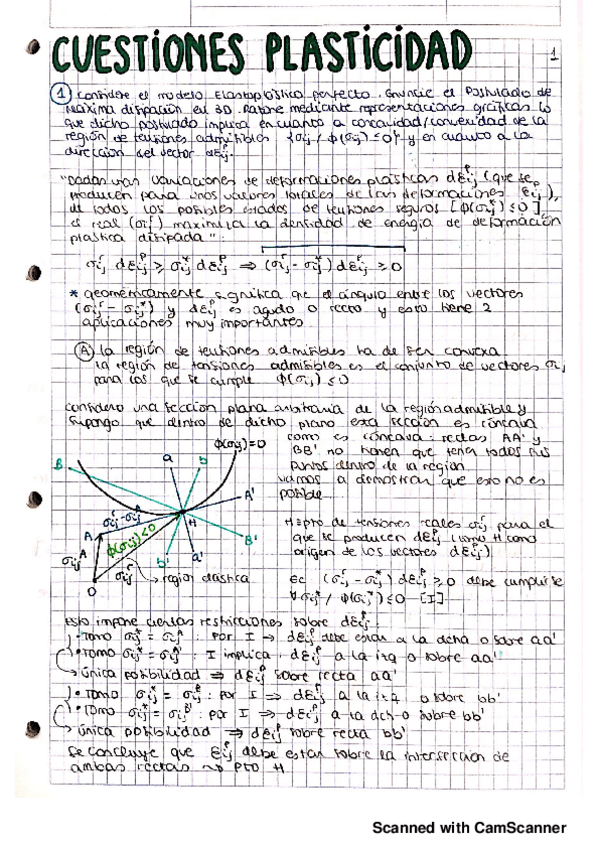 CUESTIONES PLASTICIDAD
1
① Considere el modelo Elastoplástico perfecto. Enuncie el Postulado de
máxima disipación en 3D. Razone mediante representaciones gráficas lo
que dicho postulado implica en cuanto a concavidad/convexidad de la
región de tensiones admisibles {σij / ϕ(σij) ≤ 0} y en cuanto a la
dirección del vector dεᵖij.
"Dadas unas variaciones de deformaciones plásticas dεᵖij (que se
producen para unos valores totales de las deformaciones εᵖij),
de todos los posibles estados de tensiones seguros [ϕ(σ*ij) ≤ 0],
el real (σʳij) maximiza la densidad de energía de deformación
plástica disipada":
σʳij dεᵖij ≥ σ*ij dεᵖij ⇒ (σʳij - σ*ij) dεᵖij ≥ 0
* geométricamente significa que el ángulo entre los vectores
(σʳij - σ*ij) y dεᵖij es agudo o recto y esto tiene 2
aplicaciones muy importantes
Ⓐ la región de tensiones admisibles ha de ser convexa
la región de tensiones admisibles es el conjunto de vectores σij
para los que se cumple ϕ(σij) ≤ 0
considero una sección plana arbitraria de la región admisible y
supongo que dentro de dicho plano esta sección es cóncava
ϕ(σij)=0
como es cóncava: rectas AA' y
BB' no tienen que tener todos sus
puntos dentro de la región.
vamos a demostrar que esto no es
posible
B
a
b
A'
H
B'
A
b'
a'
O
σʳij - σᴬij
σᴬij
σʳij
ϕ(σij)<0
región elástica
H = pto de tensiones reales σʳij para el
que se producen dεᵖij (tomo H como
origen de los vectores dεᵖij)
Ec (σʳij - σ*ij) dεᵖij ≥ 0 debe cumplirse
∀ σ*ij / ϕ(σ*ij) ≤ 0 - [I]
Esto impone ciertas restricciones sobre dεᵖij:
• Tomo σ*ij = σᴬij : por I ⇒ dεᵖij debe estar a la dcha o sobre aa'
• Tomo σ*ij = σᴬ'ij : I implica : dεᵖij a la izq o sobre aa'
→ única posibilidad ⇒ dεᵖij sobre recta aa'
• Tomo σ*ij = σᴮij : por I ⇒ dεᵖij a la izq o sobre bb'
• Tomo σ*ij = σᴮ'ij : por I ⇒ dεᵖij a la dch o sobre bb'
→ única posibilidad ⇒ dεᵖij sobre recta bb'
se concluye que εᵖij debe estar sobre la intersección de
ambas rectas → pto H
Scanned with CamScanner